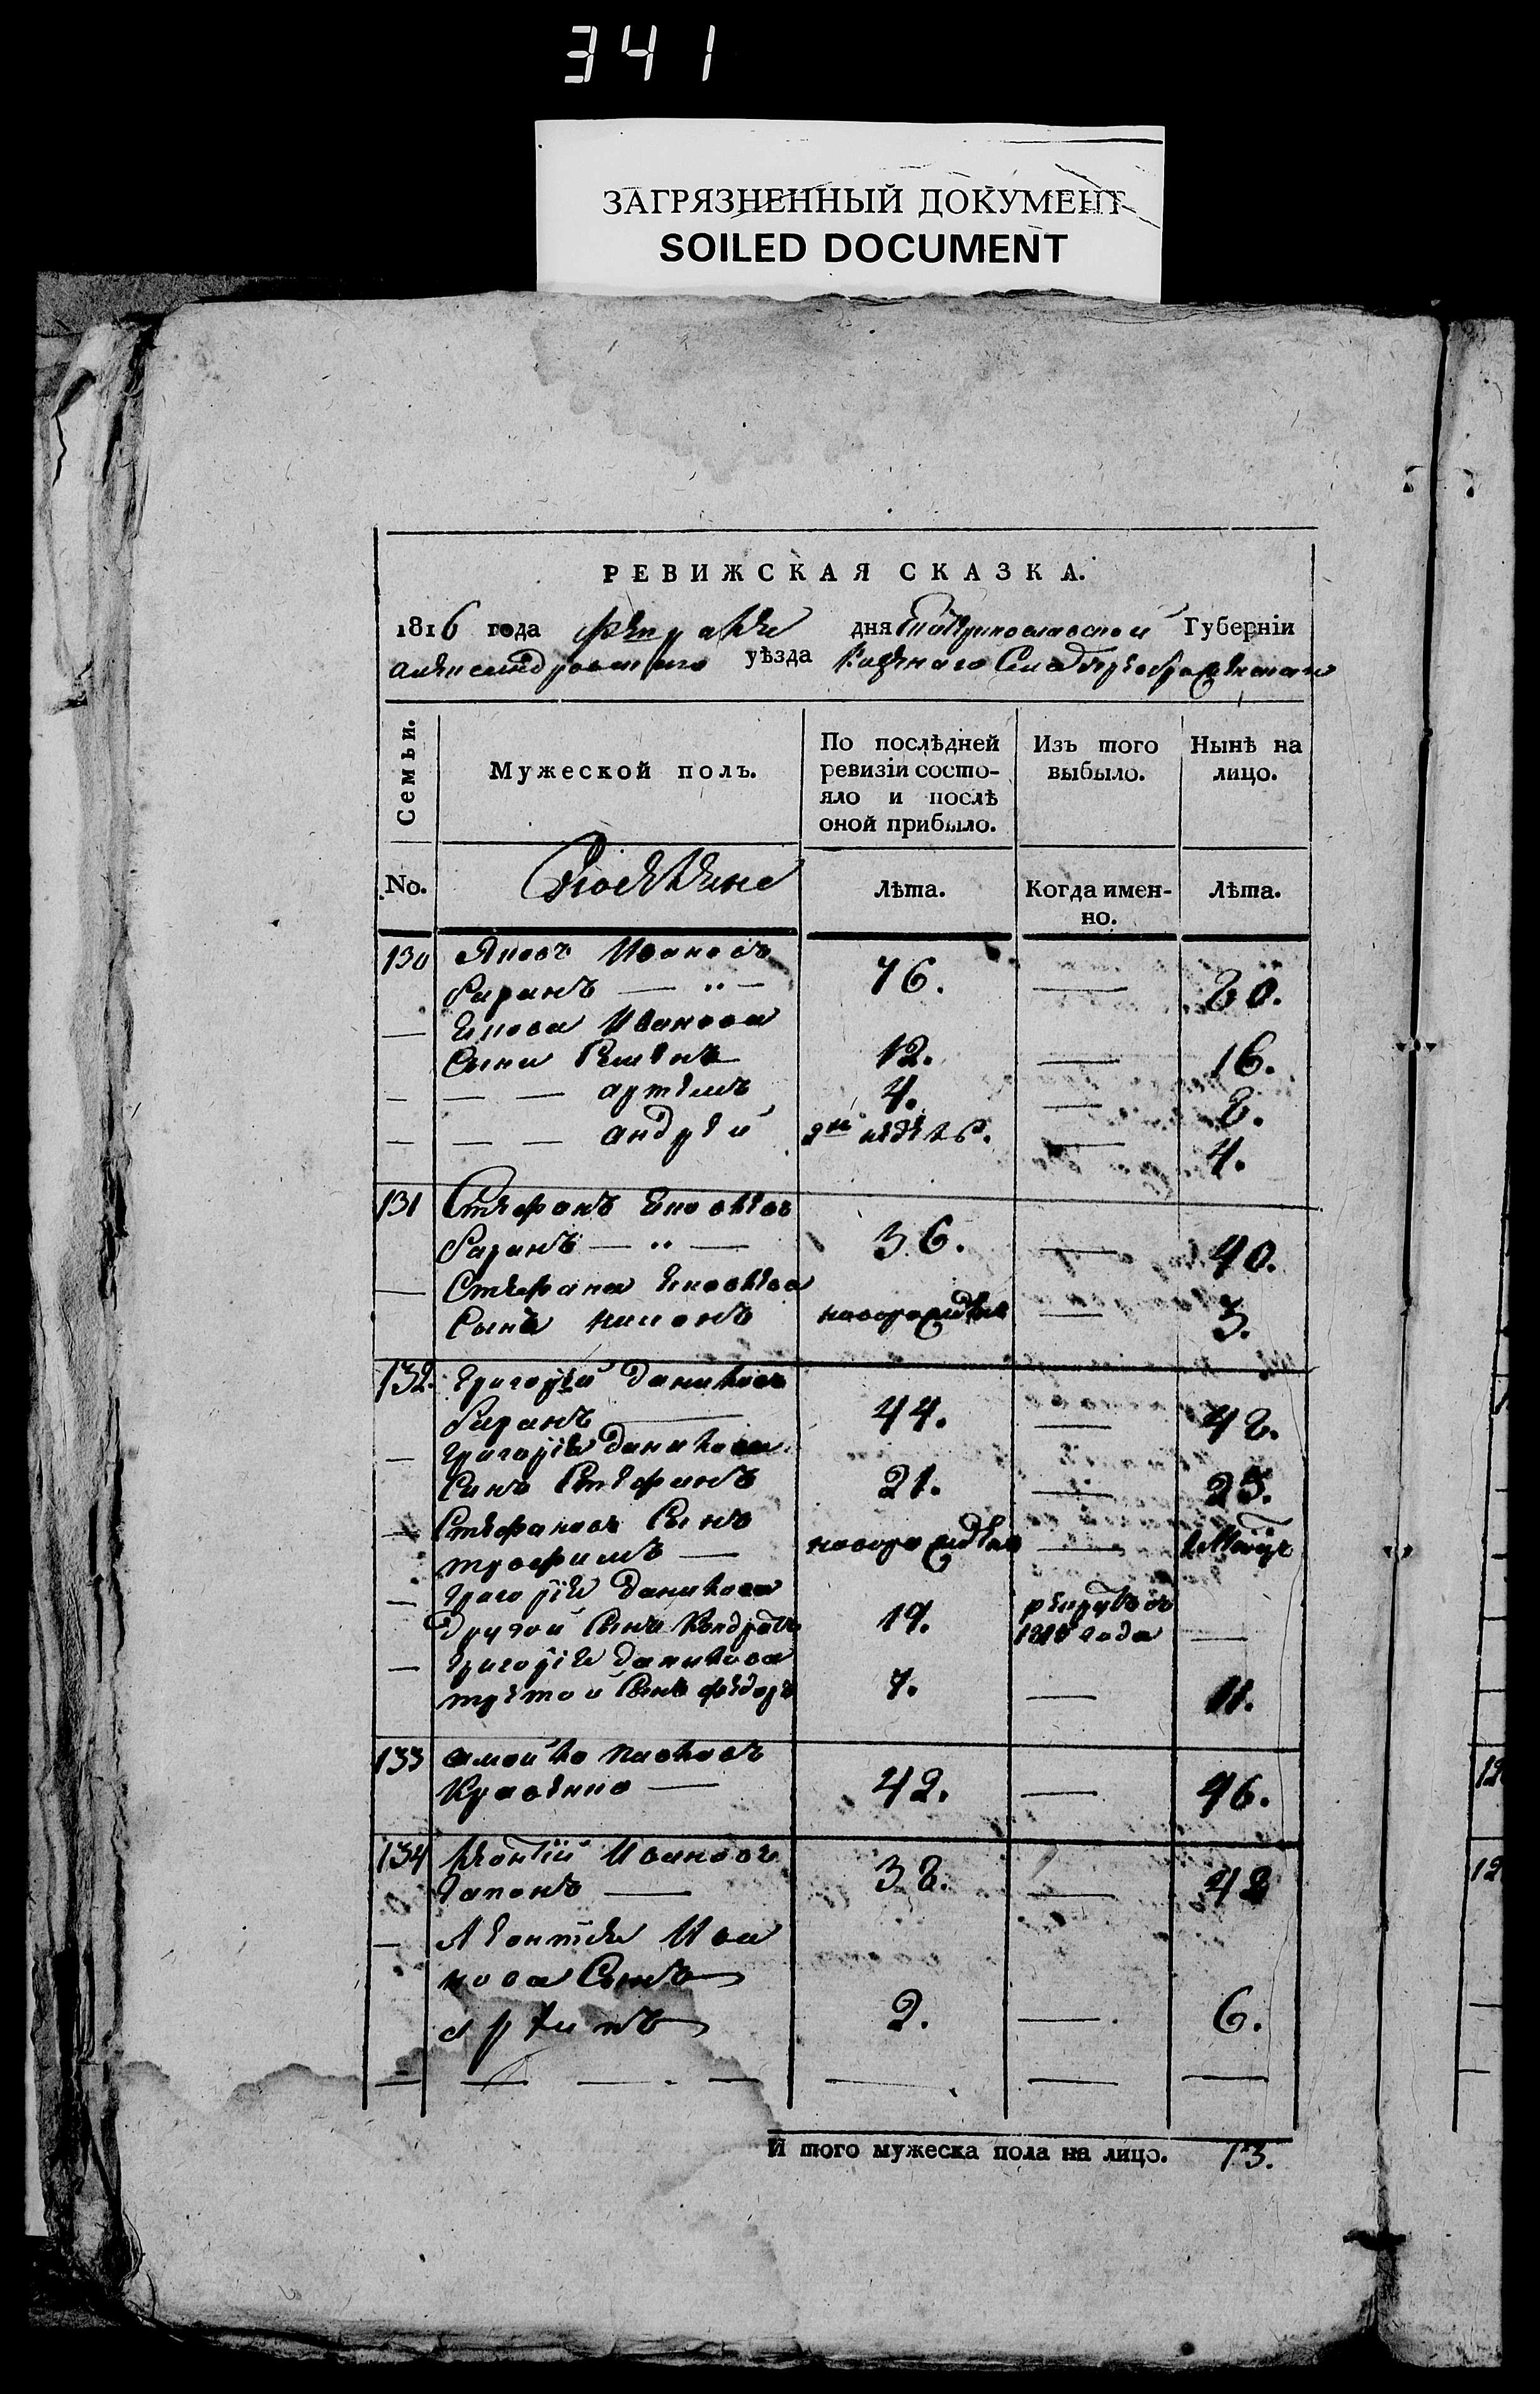 341
ЗАГРЯЗНЕННЫЙ ДОКУМЕНТ
SOILED DOCUMENT
РЕВИЖСКАЯ СКАЗКА.
1816 года дня Екатеринославской Губерніи
александровского уѣзда Казенаго Села
Семьи.
Мужеской полъ.
По послѣдней ревизіи состо-
яло и послѣ
оной прибыло.
Изъ того
выбыло.
Нынѣ на
лицо.
No.
лѣта.
Когда имен-
но.
лѣта.
130 Яковъ Ивановъ
Таранъ — 76. — 80.
— Якова Иванова
Сынъ 12. — 16.
— — — артемъ 4. — 8.
— — — андрей — 4.
131 Стефанъ Яковлевъ
Таранъ — 36. — 40.
— Стефана Яковлева
Сынъ новорожденъ — 3.
132. Григорей Даниловъ
Таранъ 44. — 48.
— Григорія Данилова
Сынъ Стефанъ 21. — 25.
— Стефановъ Сынъ
трофимъ — новорожденъ —
— Григорія Данилова
другой Сынъ Кондратъ 19. рекрутъ въ
года —
— Григорія Данилова
третой Сынъ федоръ 7. — 11.
133 самойло Павловъ
Кравченко — 42. — 46.
134 Леонтій Ивановъ
Гапонъ — 38. — 42
— Леонтія Ива
нова Сынъ
2. — 6.
И того мужеска пола на лицо. 13.